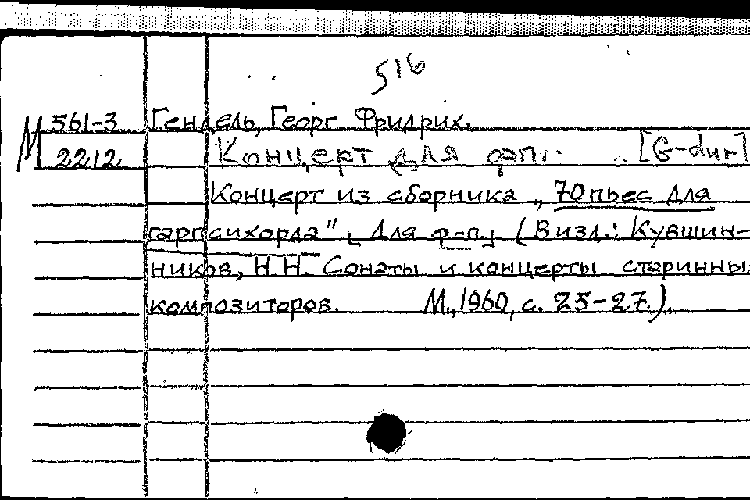 516
М 561-3 Гендель, Георг Фридрих.
2212 Концерт для фп. [G-dur]
Концерт из сборника „70 пьес для
гарпсихорда", для ф-п., (В изд.: Кувшин-
ников, Н.Н. Сонаты и концерты старинны
композиторов. М., 1960, с. 25-27.).